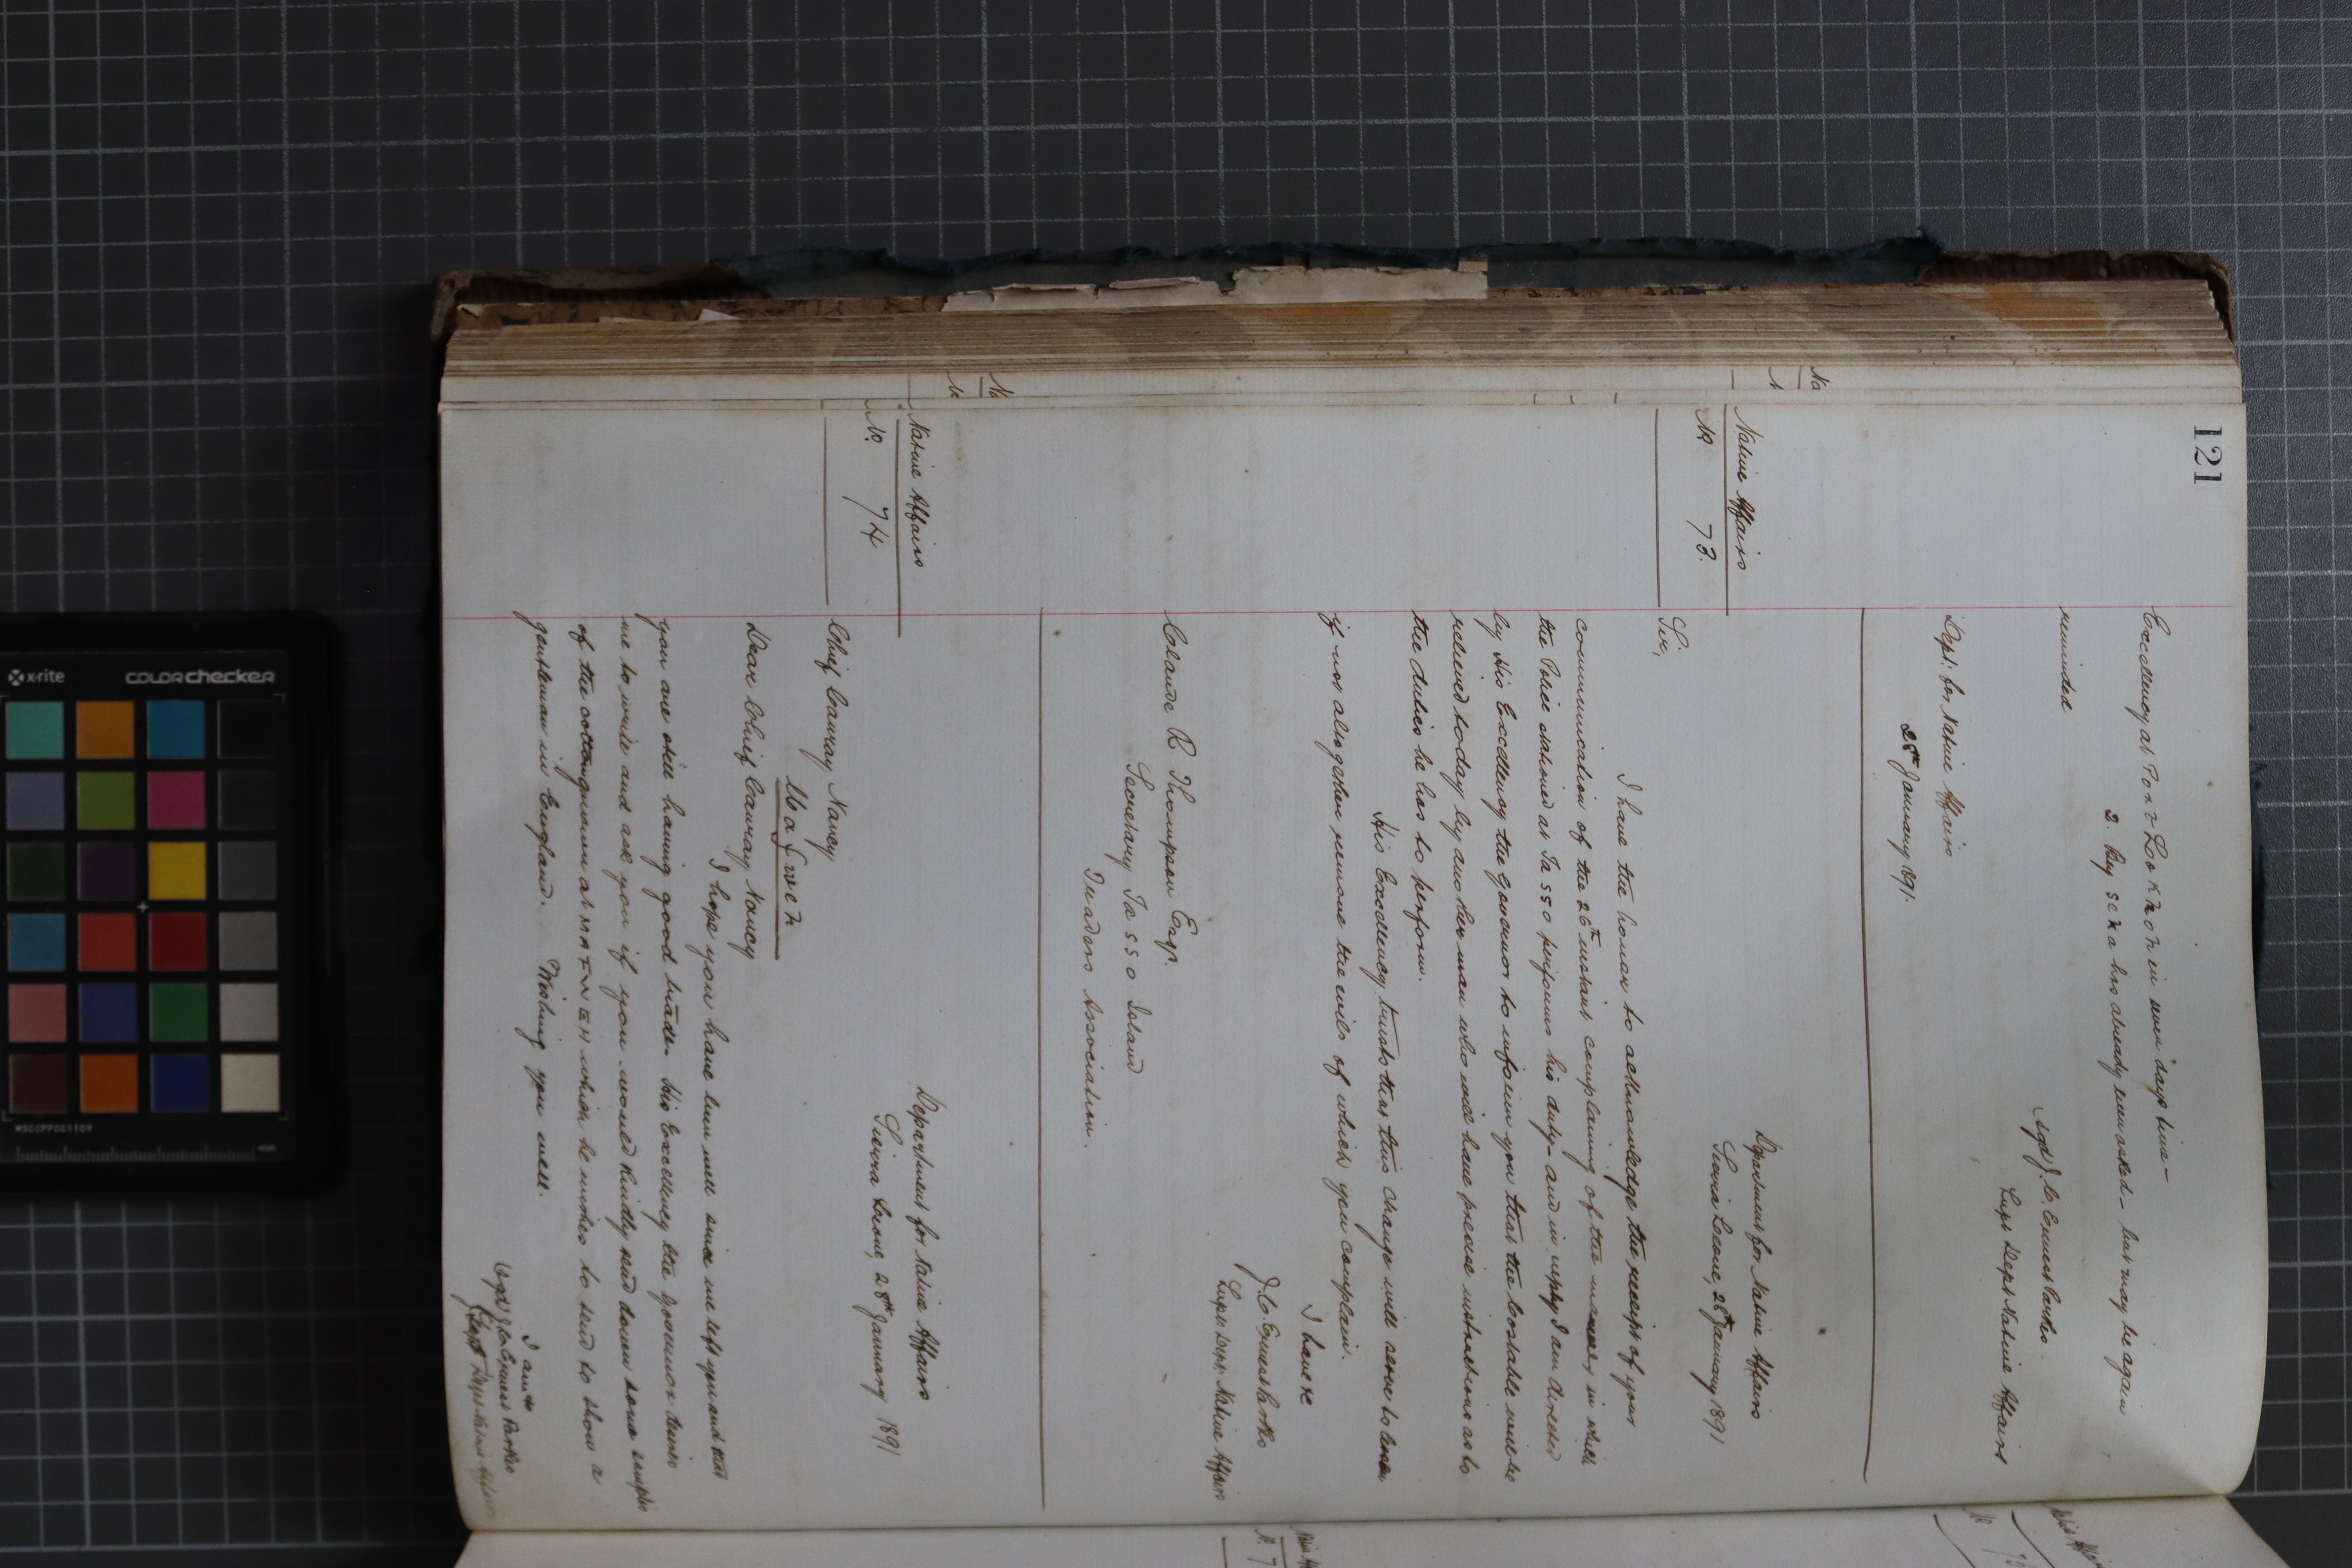 121
Excellency at Port Lokkoh in seven days time -
2. Bey Seka has already been asked - but may be again
reminded
sgd J. C. Ernest Parkes
Supt Dept Native Affairs
Dept. for Native Affairs
28th January 1891.
Native Affairs
No 73.
Department for Native Affairs
Sierra Leone, 28th January 1891
Sir,
I have the honor to acknowledge the receipt of your
communication of the 26th instant complaining of the manner in which
the Police stationed at Tasso performs his duty - and in reply I am directed
by His Excellency the Governor to inform you that the Constable will be
relieved today by another man who will have precise instructions as to
the duties he has to perform.
His Excellency trusts that this change will serve to lessen
if not altogether remove the evils of which you complain.
I have &c
J. C. Ernest Parkes
Supt. Dept. Native Affairs
Claude R Thompson Esq.
Secretary Tasso Island
Traders Association.
Native Affairs
No. 74
Department for Native Affairs
Sierra Leone, 28th January 1891
Chief Cauray Nancy
Mafweh
Dear Chief Cauray Nancy
I hope you have been well since we left you and that
you are still having good trade. His Excellency the Governor desires
me to write and ask you if you would kindly send down some samples
of the cotton grown at MAFWEH which he wishes to send to show a
gentleman in England. Wishing you well.
I am &c
sgd J. C. Ernest Parkes
Supt Dept Native Affairs
x-rite
colorchecker
MSCCPPCC1109